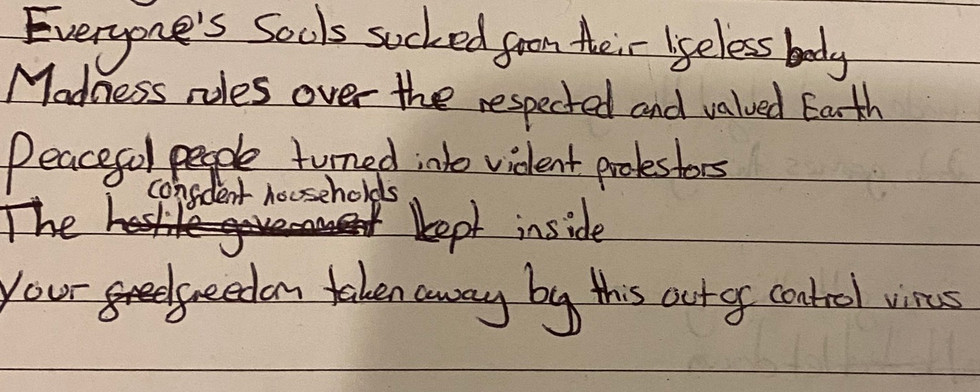 Everyone's Souls sucked from their lifeless body
Madness rules over the respected and valued Earth
Peaceful people turned into violent protestors
confident households
The hostile government kept inside
Your freedom taken away by this out of control virus